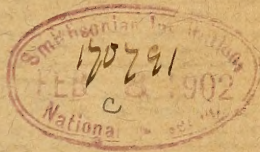 Smithsonian Institution
170791
FEB 8 1902
C
National